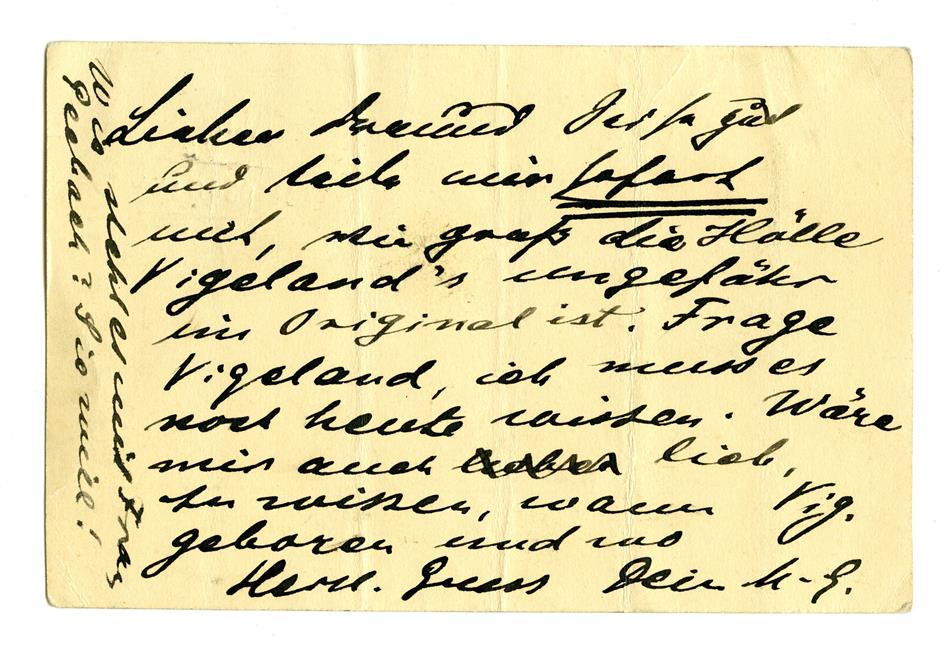 Lieber Freund Sei so gut
und teile mir sofort
mit, wie groß die Hölle
Vigeland's ungefähr
im Original ist. Frage
Vigeland, ich muss es
noch heute wissen. Wäre
mir auch lieb,
zu wissen, wann Vig.
geboren und wo
Herzl. Gruss Dein M-G.
Wie steht es mit Frau